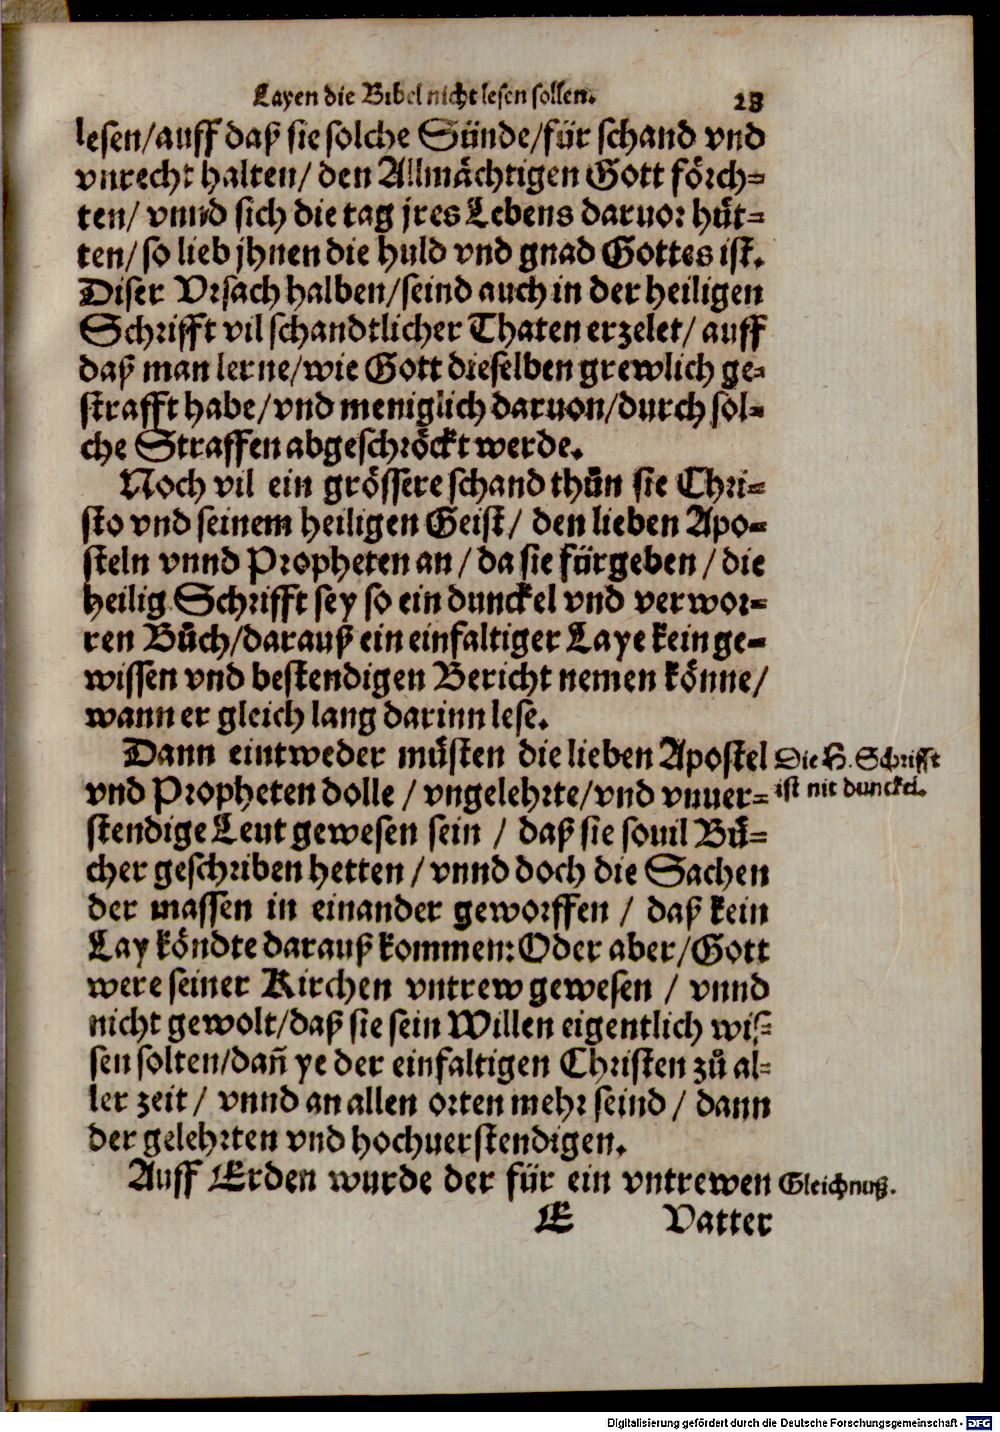 Layen die Bibel nicht lesen sollen. 23
lesen/auff daß sie solche Sünde/für schand vnd
vnrecht halten/ den Allmächtigen Gott förch⸗
ten/ vnnd sich die tag jres Lebens daruor hüt⸗
ten/ so lieb jhnen die huld vnd gnad Gottes ist.
Diser Vrsach halben/seind auch in der heiligen
Schrifft vil schandtlicher Thaten erzelet/ auff
daß man lerne/wie Gott dieselben grewlich ge⸗
strafft habe/vnd meniglich daruon/durch sol⸗
che Straffen abgeschröckt werde.
Noch vil ein grössere schand thůn sie Chri⸗
sto vnd seinem heiligen Geist/ den lieben Apo⸗
steln vnnd Propheten an/ da sie fürgeben/ die
heilig Schrifft sey so ein dunckel vnd verwor⸗
ren Bůch/darauß ein einfaltiger Laye kein ge⸗
wissen vnd bestendigen Bericht nemen könne/
wann er gleich lang darinn lese.
Dann eintweder müsten die lieben Apostel
Die H. Schrifft
ist nit dunckel.
vnd Propheten dolle/ vngelehrte/vnd vnuer⸗
stendige Leut gewesen sein / daß sie souil Bü⸗
cher geschriben hetten/ vnnd doch die Sachen
der massen in einander geworffen / daß kein
Lay köndte darauß kommen: Oder aber/Gott
were seiner Kirchen vntrew gewesen / vnnd
nicht gewolt/daß sie sein Willen eigentlich wis⸗
sen solten/dañ ye der einfaltigen Christen zů al⸗
ler zeit/ vnnd an allen orten mehr seind/ dann
der gelehrten vnd hochuerstendigen.
Auff Erden wurde der für ein vntrewen
Gleichnuß.
E Vatter
Digitalisierung gefördert durch die Deutsche Forschungsgemeinschaft - DFG